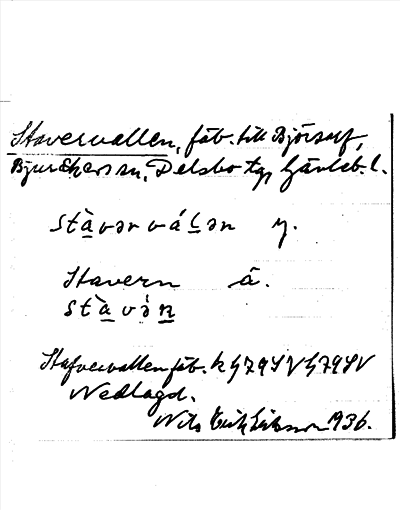 Stavervallen, fäb. till Björsarf,
Bjuråkers sn, Delsbo tg, Gävleb. l.
stàvərváLən y.
Stavern å.
stàvə̀n
Stafvervallen fäb. k G79SV G79SV
Nedlagd.
Nils Erik Eriksson 1936.